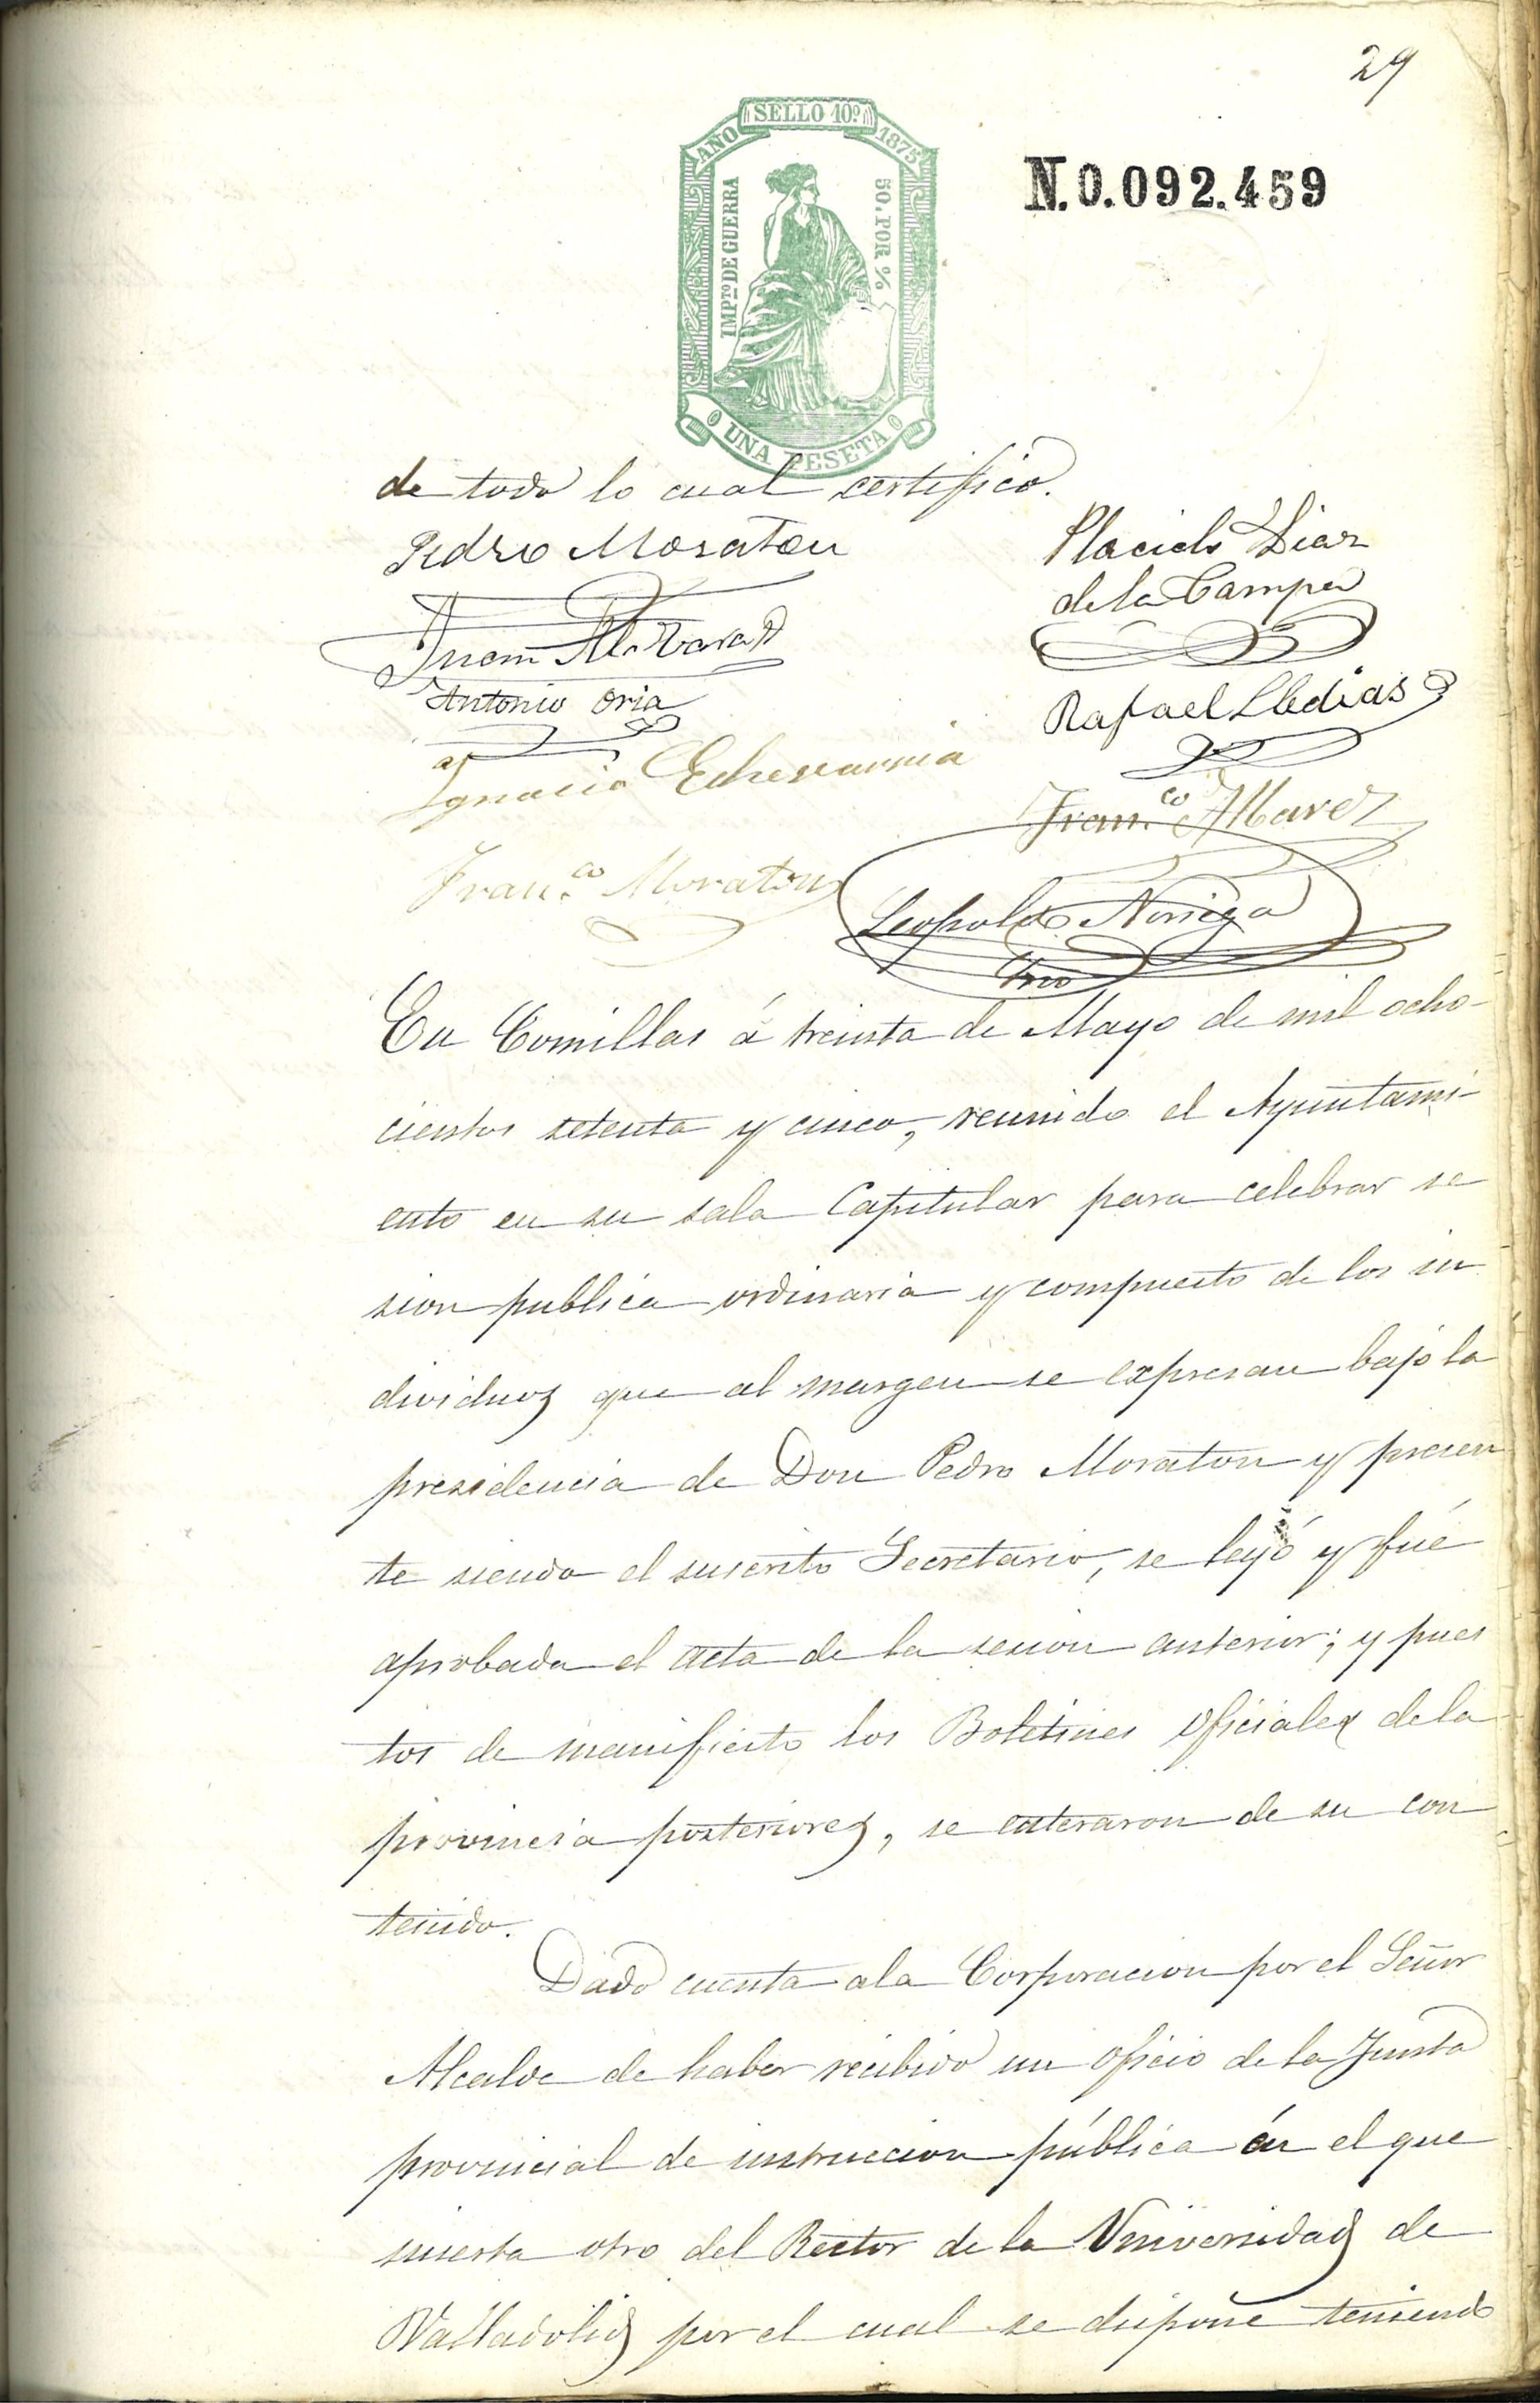 29
SELLO 10º
AÑO 1875
IMPTO DE GUERRA
50. POR %
N.0.092.459
UNA PESETA
de todo lo cual certifico.
Pedro Moraton
Placido Diaz
de la Campa
Juan
Antonio Oria
Rafael Lledias
Ignacio Echevarria
Fran.co Alvarez
Fran.co Moraton
Leopoldo Noriega
Srio
En Comillas á treinta de Mayo de mil ocho-
cientos setenta y cinco, reunido el Ayuntami-
ento en su sala Capitular para celebrar se
sion publica ordinaria y compuesto de los in
dividuos que al margen se expresan bajo la
presidencia de Don Pedro Moraton y presen
te siendo el suscrito Secretario, se leyó y fué
aprobada el acta de la sesion anterior; y pues
tos de manifiesto los Boletines oficiales de la
provincia posteriores, se enteraron de su con
tenido.
Dado cuenta a la Corporacion por el Señor
Alcalde de haber recibido un oficio de la Junta
provincial de instruccion pública en el que
inserta otro del Rector de la Universidad de
Valladolid por el cual se dispone teniendo